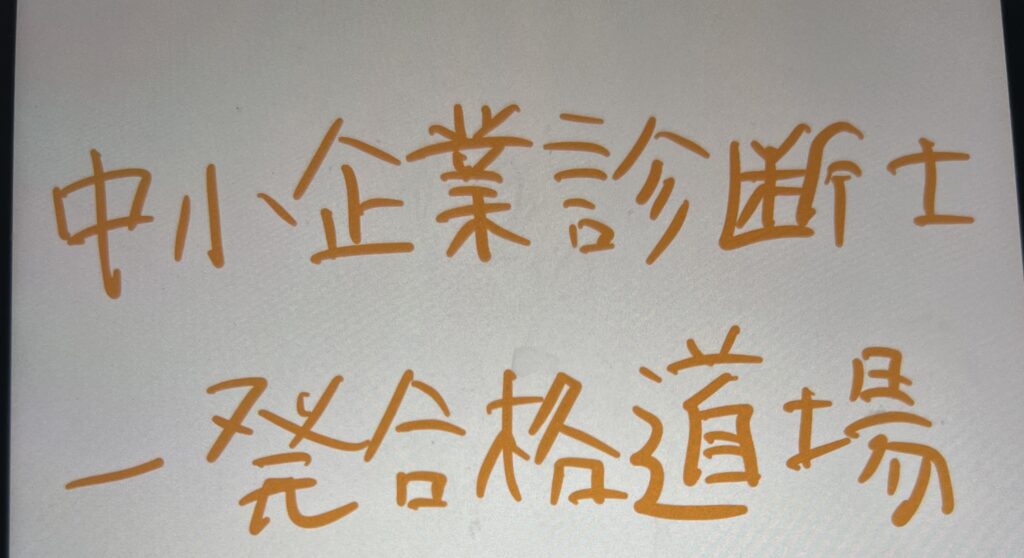 中小企業診断士
一発合格道場